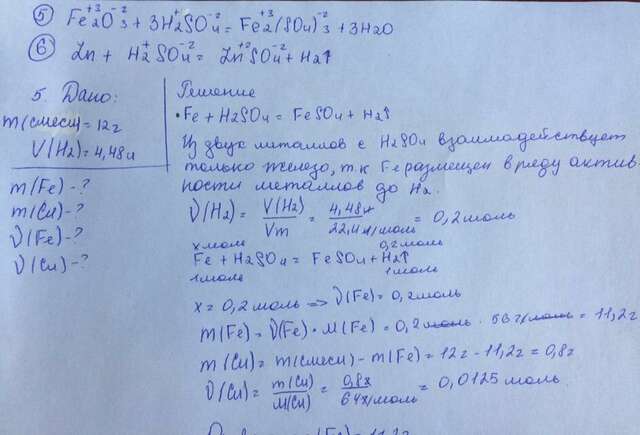 ⑤ Fe₂⁺³O₃⁻² + 3H₂⁺SO₄⁻² = Fe₂⁺³(SO₄)₃⁻² + 3H₂O
⑥ Zn + H₂⁺SO₄⁻² = Zn⁺²SO₄⁻² + H₂↑
5. Дано:
m(смеси) = 12г
V(H₂) = 4,48л
m(Fe) - ?
m(Cu) - ?
ν(Fe) - ?
ν(Cu) - ?
Решение
• Fe + H₂SO₄ = FeSO₄ + H₂↑
Из двух металлов с H₂SO₄ взаимодействует
только железо, т.к Fe размещен в ряду актив-
ности металлов до H₂.
ν(H₂) = V(H₂)/Vm = 4,48л/22,4л/моль = 0,2моль
x моль 0,2моль
Fe + H₂SO₄ = FeSO₄ + H₂↑
1моль 1моль
x = 0,2 моль => ν(Fe) = 0,2моль
m(Fe) = ν(Fe) · M(Fe) = 0,2моль · 56г/моль = 11,2г
m(Cu) = m(смеси) - m(Fe) = 12г - 11,2г = 0,8г
ν(Cu) = m(Cu)/M(Cu) = 0,8г/64г/моль = 0,0125 моль